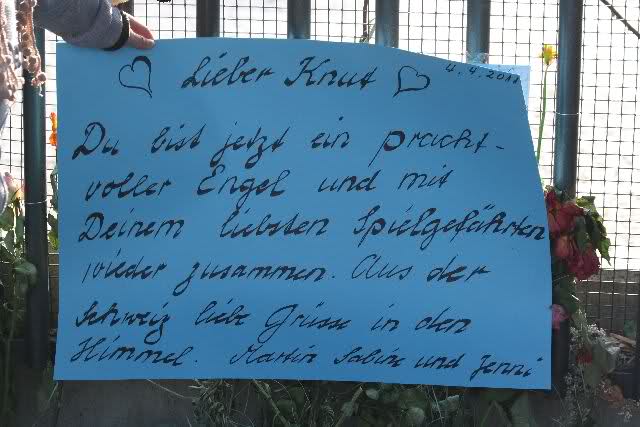 Lieber Knut 4.4.2011
Du bist jetzt ein pracht-
voller Engel und mit
Deinem liebsten Spielgefährten
wieder zusammen. Aus der
Schweiz liebe Grüsse in den
Himmel. Martin Sabine und Jenni